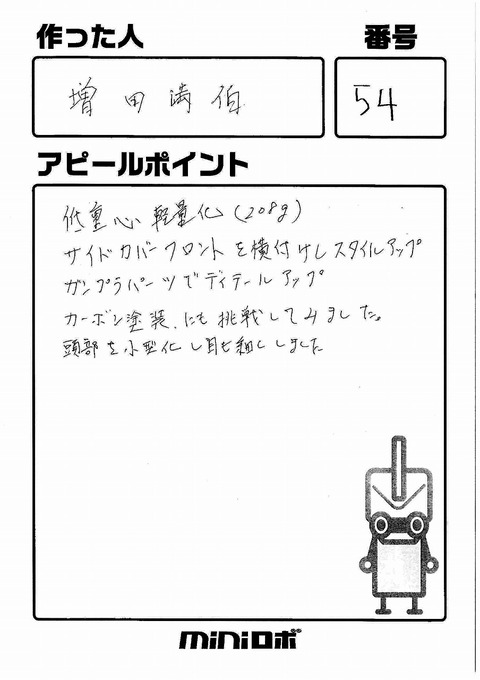 作った人
番号
増田 満伯
54
アピールポイント
低重心 軽量化 (208g)
サイドカバーフロントを横付けしスタイルアップ
ガンプラパーツでディテールアップ
カーボン塗装、にも挑戦してみました。
頭部を小型化し目も細くしました
miniロボ